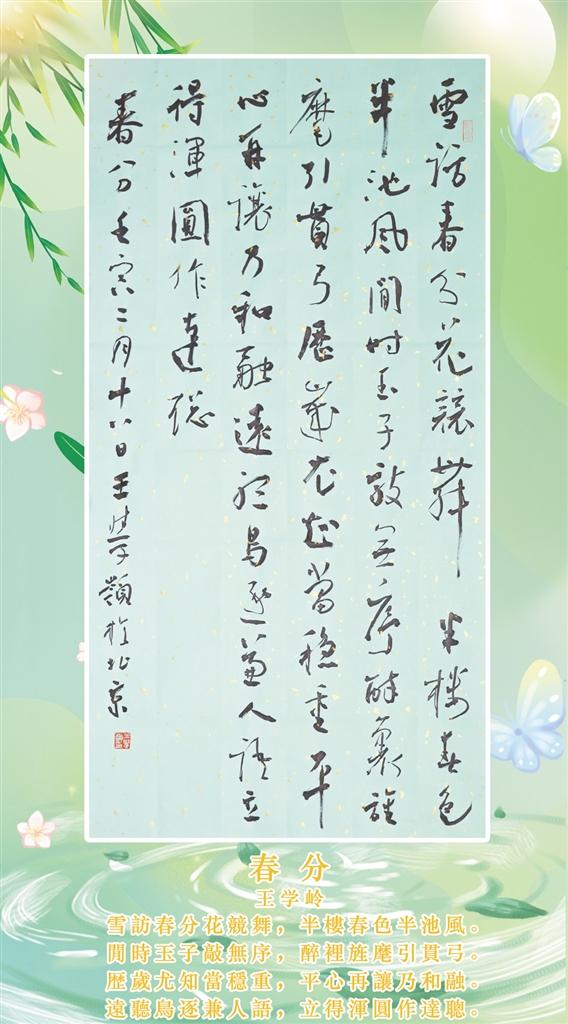 雪訪春分花競舞 半樓春色
半池風閒時玉子敲無序醉裏旌
麾引貫弓歷歲尤知當穩重平
心再讓乃和融遠聽鳥逐兼人語立
得渾圓作達聰
春分壬寅二月十八日王學嶺於北京
春分
王学岭
雪訪春分花競舞，半樓春色半池風。
閒時玉子敲無序，醉裡旌麾引貫弓。
歷歲尤知當穩重，平心再讓乃和融。
遠聽鳥逐兼人語，立得渾圓作達聰。